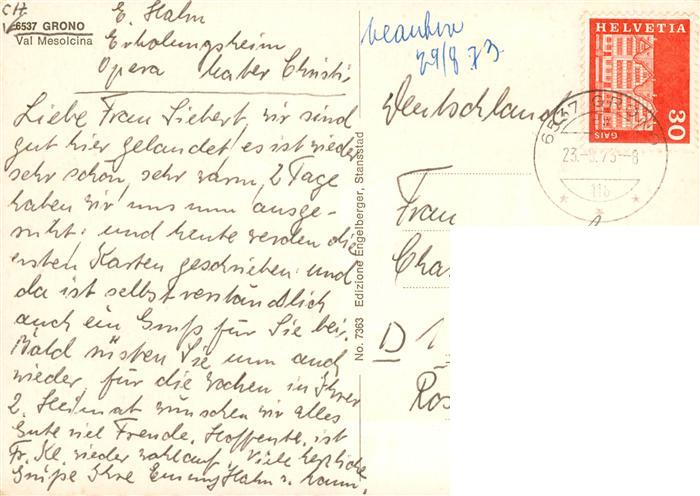 CH-
6537 GRONO
Val Mesolcina
E. Hahn
Erholungsheim
Opera Mater Christi
Liebe Frau Siebert, wir sind
gut hier gelandet, es ist wieder
sehr schön, sehr warm, 2 Tage
haben wir uns nun ausge-
ruht, und heute werden die
ersten Karten geschrieben und
da ist selbstverständlich
auch ein Gruß für Sie bei.
Bald rüsten Sie nun auch
wieder, für die Wochen in Ihrer
2. Heimat wünschen wir alles
Gute viel Freude. Hoffentl. ist
Fr. Kl. wieder wohlauf. Viele herzliche
Grüße Ihre Emmy Hahn u. Mann.
No. 7363 Edizione Engelberger, Stansstad
29/8 73
Deutschland
HELVETIA
GAIS
30
6537 GRONO
23.-8.73--8
Frau
Cha
D 1
Ros